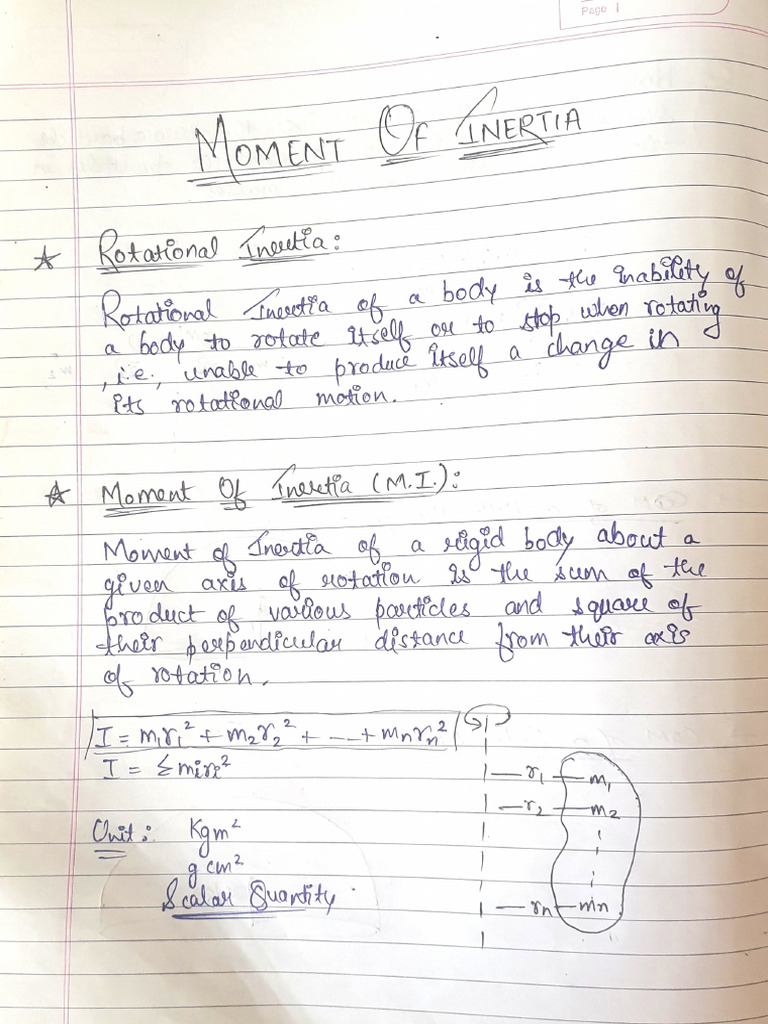 Page 1
MOMENT OF INERTIA
☆ Rotational Inertia:
Rotational Inertia of a body is the inability of
a body to rotate itself or to stop when rotating
, i.e., unable to produce itself a change in
its rotational motion.
☆ Moment Of Inertia (M.I.):
Moment of Inertia of a rigid body about a
given axis of rotation is the sum of the
product of various particles and square of
their perpendicular distance from their axis
of rotation.
I = m₁r₁² + m₂r₂² + --- + mₙrₙ²
I = Σmᵢrᵢ²
r₁ m₁
r₂ m₂
rₙ mₙ
Unit: Kgm²
g cm²
Scalar Quantity